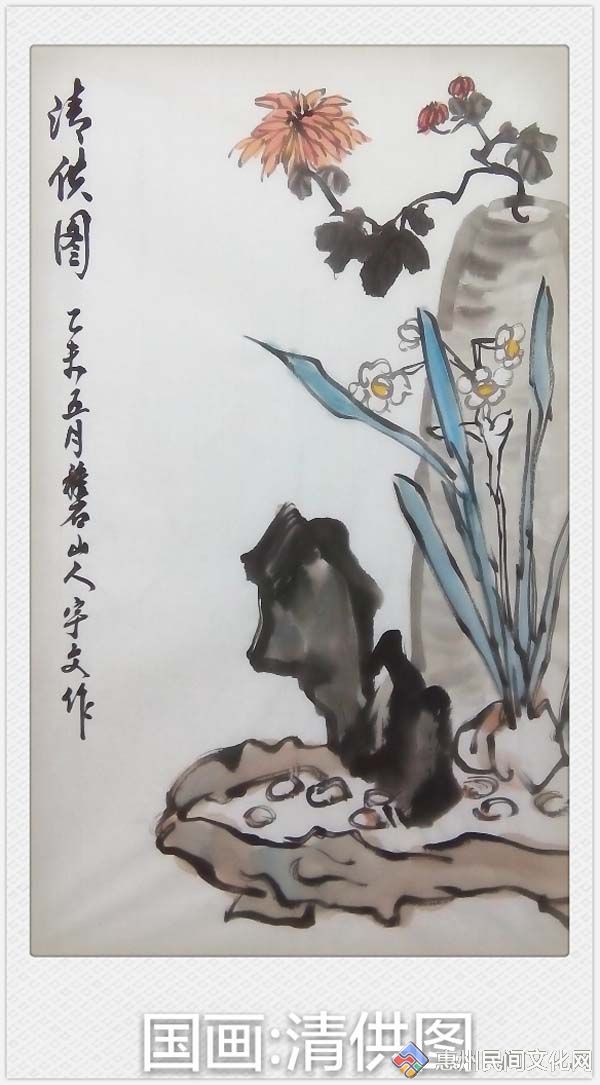 清供图
乙未五月磐山人宇文作
国画:清供图
惠州|民间文化网